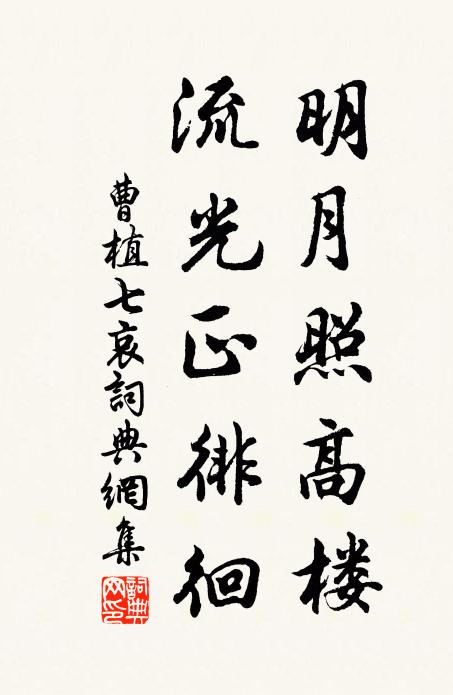 明月照高楼
流光正徘徊
曹植七哀詞典網集
詞典网印